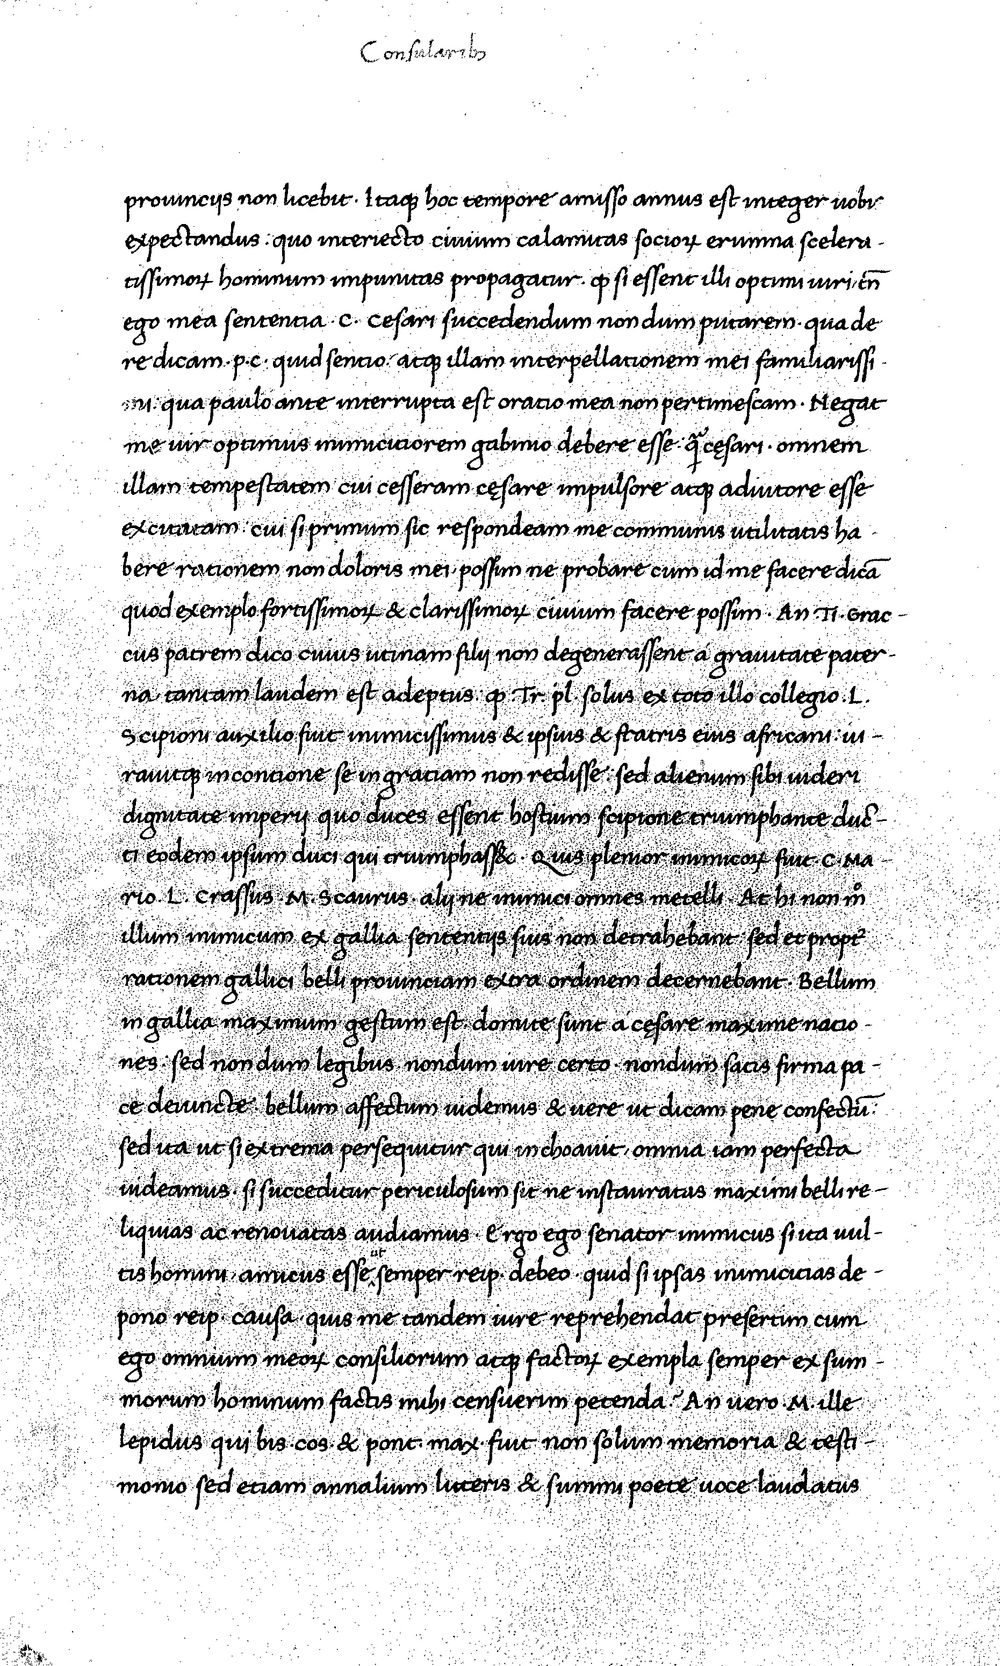 Consularibꝫ
prouincijs non licebit · Itaqꝫ hoc tempore amisso annus est integer uobis
expectandus : quo interiecto ciuium calamitas socioꝝ erumna scelera -
tissimoꝝ hominum impunitas propagatur . ꝙ si essent illi optimi uiri · tn̄
ego mea sententia · C · Cesari succedendum non dum putarem · qua de
re dicam · p · c · quid sentio · atqꝫ illam interpellationem mei familiarissi -
mi · qua paulo ante interrupta est oratio mea non pertimescam · Negat
me uir optimus inimicitiorem gabinio debere esse · quā cęsari · omnem
illam tempestatem cui cesseram cęsare impulsore atqꝫ adiutore esse
excitatam · cui si primum sic respondeam me communis utilitatis ha -
bere rationem non doloris mei · possim ne probare cum id me facere dicā
quod exemplo fortissimoꝝ & clarissimoꝝ ciuium facere possim · An · Ti · Grac -
cus patrem dico cuius utinam filij non degenerassent a grauitate pater -
na tantam laudem est adeptus ꝙ · Tr · pl · solus ex toto illo collegio · L ·
Scipioni auxilio fuit inimicissimus & ipsius & fratris eius africani · iu -
rauitqꝫ in contione se in gratiam non redisse · sed alienum sibi uideri
dignitate imperij quo duces essent hostium scipione triumphante duc̄ -
ti eodem ipsum duci qui triumphass& · Quis plenior inimicoꝝ fuit · C · Ma -
rio · L · Crassus · M · Scaurus · alij ne inimici omnes metelli · At hi non mͦ
illum inimicum ex gallia sententijs suis non detrahebant sed et propt̉
rationem gallici belli prouinciam extra ordinem decernebant · Bellum
in gallia maximum gestum est · domite sunt a cęsare maxime natio -
nes · sed non dum legibus · nondum iure certo · nondum satis firma pa -
ce deuincte · bellum affectum uidemus & uere ut dicam pene confectū ·
sed ita ut si extrema persequitur qui inchoauit · omnia iam perfecta
uideamus · si succeditur periculosum sit ne instauratas maximi belli re -
liquias ac renouatas audiamus · Ergo ego senator inimicus si ita uul -
tis homini · amicus esse ut semper reip · debeo · quid si ipsas inimicitias de -
pono reip · causa · quis me tandem iure reprehendat presertim cum
ego omnium meoꝝ consiliorum atqꝫ factoꝝ exempla semper ex sum -
morum hominum factis mihi censuerim petenda · An uero · M · ille
lepidus qui bis · cos · & pont · max · fuit non solum memoria & testi -
monio sed etiam annalium litteris & summi poete uoce laudatus